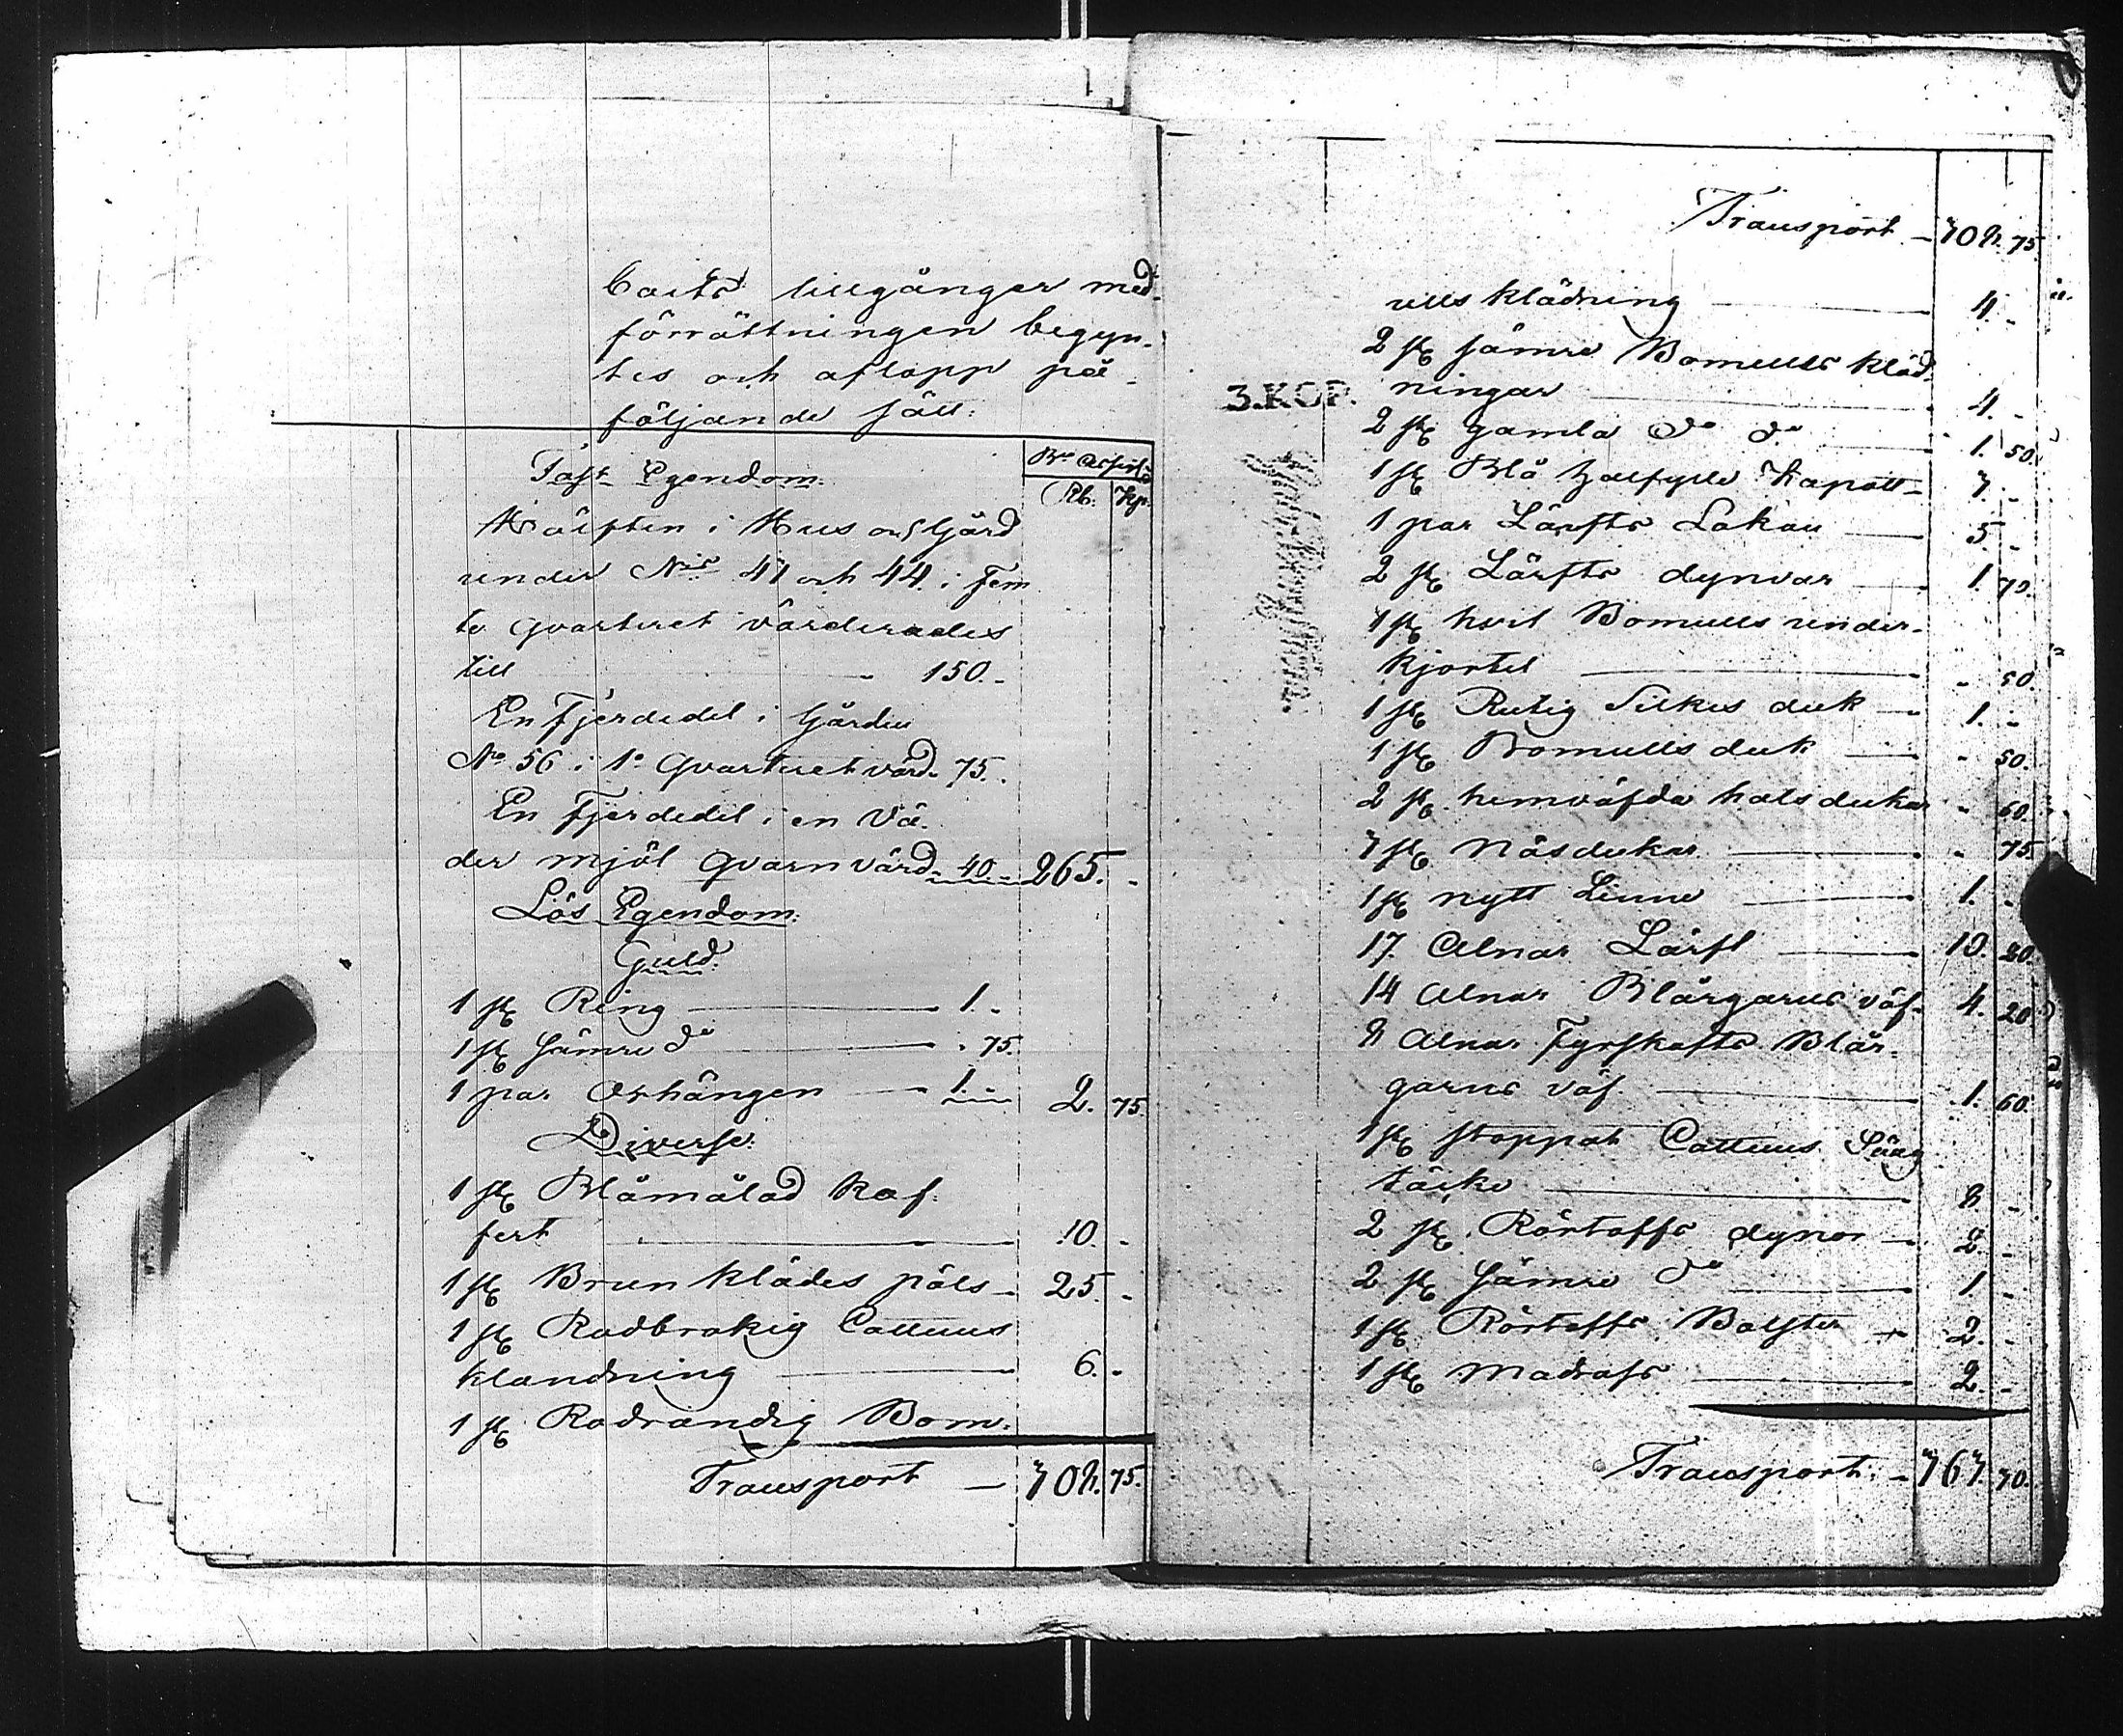 boets tillgånger med
förrättningen begyn-
tes och aflopp på
följande sätt:
Fast Egendom:
Bco Assign.
Rb. Kp.
Hälften i Hus och Gård
under Nris 41 och 44. i Fem
te Qvarteret värderades
till 150.-
En Fjerdedel i Gården
No 56 i 1o Qvarteret värd. 75.-
En Fjerdedel i en Vä-
der mjöl Qvarn värd. 40.- 265. -
Lös Egendom:
Guld:
1 st Ring 1.-
1 st sämre do - 75.
1 par Örhängen 1.- 2. 75
Diverse:
1 st Blåmålad Kof-
fert 10. -
1 st Brun Klädes päls 25. -
1 st Rödbrokig Cattuns
klandning 6. -
1 st Rödrandig Bom-
Transport 308. 75.
Transport 308. 75
ulls klädning 4. -
2 st sämre Bomulls kläd-
3.KOP.
ningar 4. -
2 st gamla do do 1. 50.
1 st Blå halfylle Kapott 7. -
1 par Lärfts Lakan 5. -
2 st Lärfts dynvar 1. 70.
1 st hvit Bomulls under-
kjortel - 50.
1 st Rutig Silkes duk 1. -
1 st Bomulls duk - 50.
2 st hemväfda halsdukar - 60.
7 st Näsdukar - 75
1 st nytt Linne 1. -
17 Alnar Lärft 10. 20.
14 Alnar Blårgarns väf 4. 20
8 Alnar Fyrskafts Blår-
garns väf 1. 60
1 st stoppat Cattuns Säng
täcke 8. -
2 st Rörtoffs dynor 2 -
2 st sämre do 1 -
1 st Rörtoffs Bolster 2. -
1 st Madrass 2. -
Transport: 367. 70.